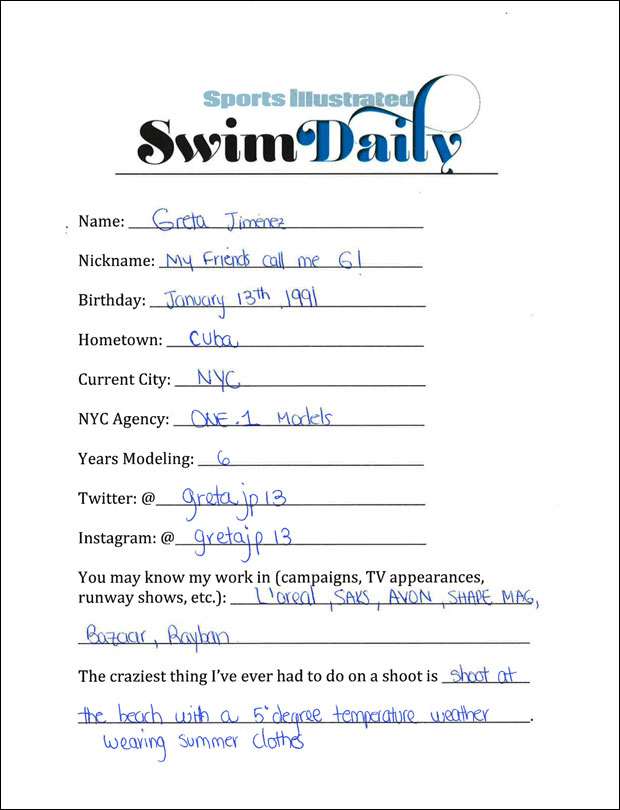 Sports Illustrated
Swim Daily
Name: Greta Jimenez
Nickname: My Friends call me G!
Birthday: January 13th 1991
Hometown: Cuba
Current City: NYC
NYC Agency: ONE.1 Models
Years Modeling: 6
Twitter: @ gretajp13
Instagram: @ gretajp13
You may know my work in (campaigns, TV appearances,
runway shows, etc.): L'oreal, SAKS, AVON, SHAPE MAG,
Bazaar, Rayban
The craziest thing I've ever had to do on a shoot is shoot at
the beach with a 5° degree temperature weather.
wearing summer clothes